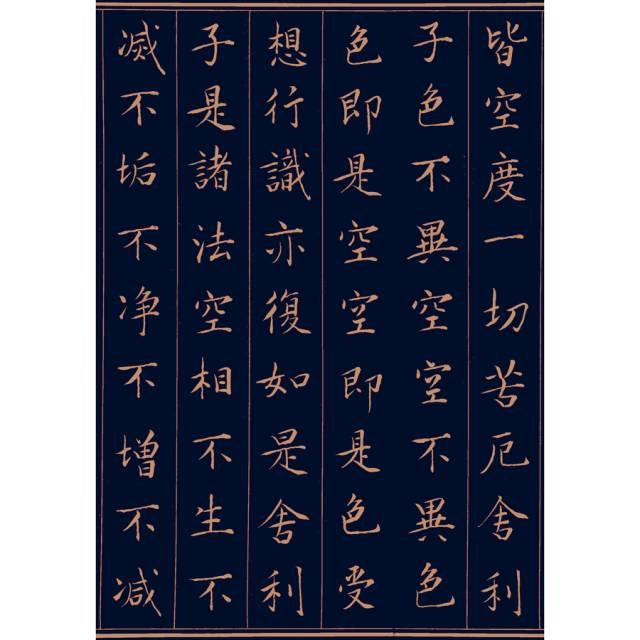 皆空度一切苦厄舍利
子色不異空空不異色
色即是空空即是色受
想行識亦復如是舍利
子是諸法空相不生不
滅不垢不净不增不減